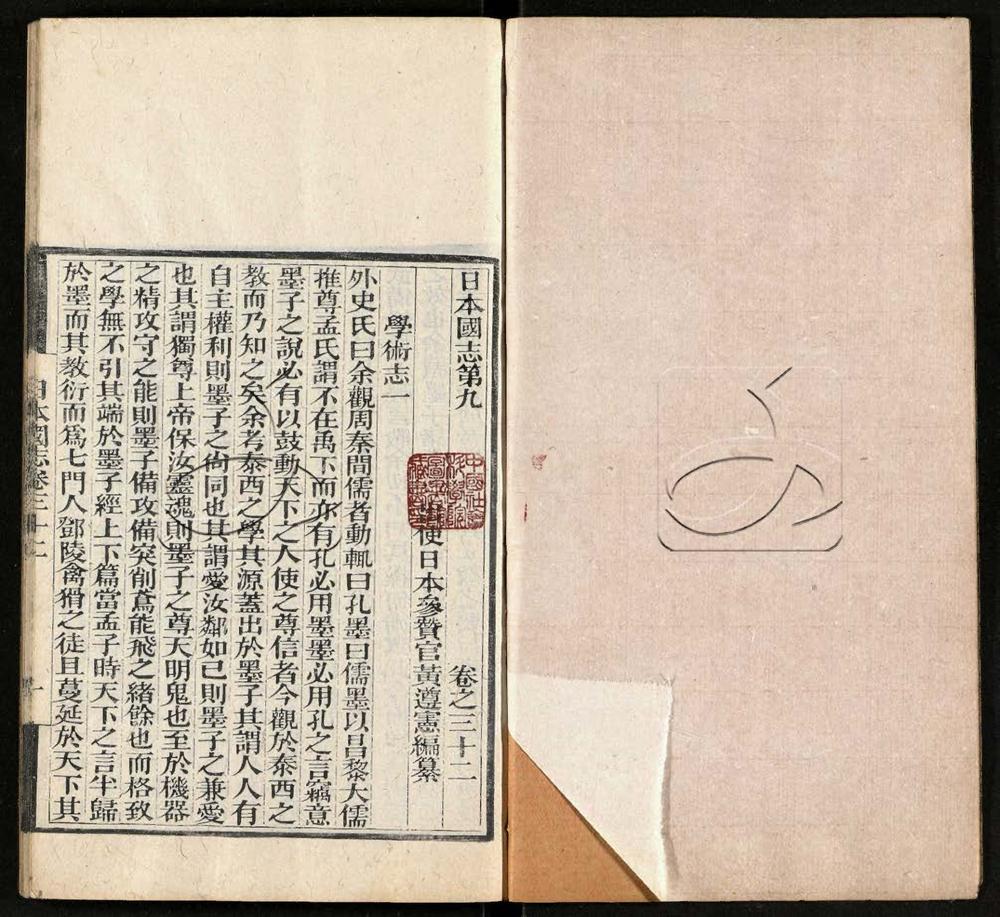 日本國志第九
卷之三十二
使日本參贊官黃遵憲編纂
學術志一
外史氏曰余觀周秦間儒者動輒曰孔墨曰儒墨以昌黎大儒
推尊孟氏謂不在禹下而亦有孔必用墨墨必用孔之言竊意
墨子之說必有以鼓動天下之人使之尊信者今觀於泰西之
教而乃知之矣余考泰西之學其源蓋出於墨子其謂人人有
自主權利則墨子之尚同也其謂愛汝鄰如己則墨子之兼愛
也其謂獨尊上帝保汝靈魂則墨子之尊天明鬼也至於機器
之精攻守之能則墨子備攻備突削鳶能飛之緒餘也而格致
之學無不引其端於墨子經上下篇當孟子時天下之言半歸
於墨而其教衍而爲七門人鄧陵禽猾之徒且蔓延於天下其
日本國志卷三十二
一